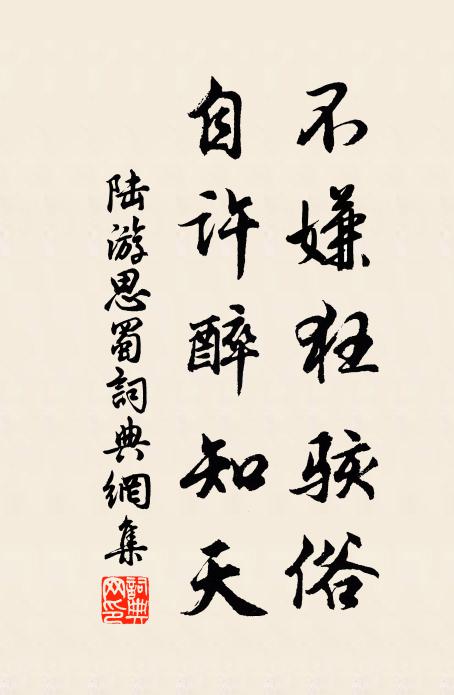 不嫌狂駭俗
自许醉知天
陆游思蜀詞典網集
詞典網印